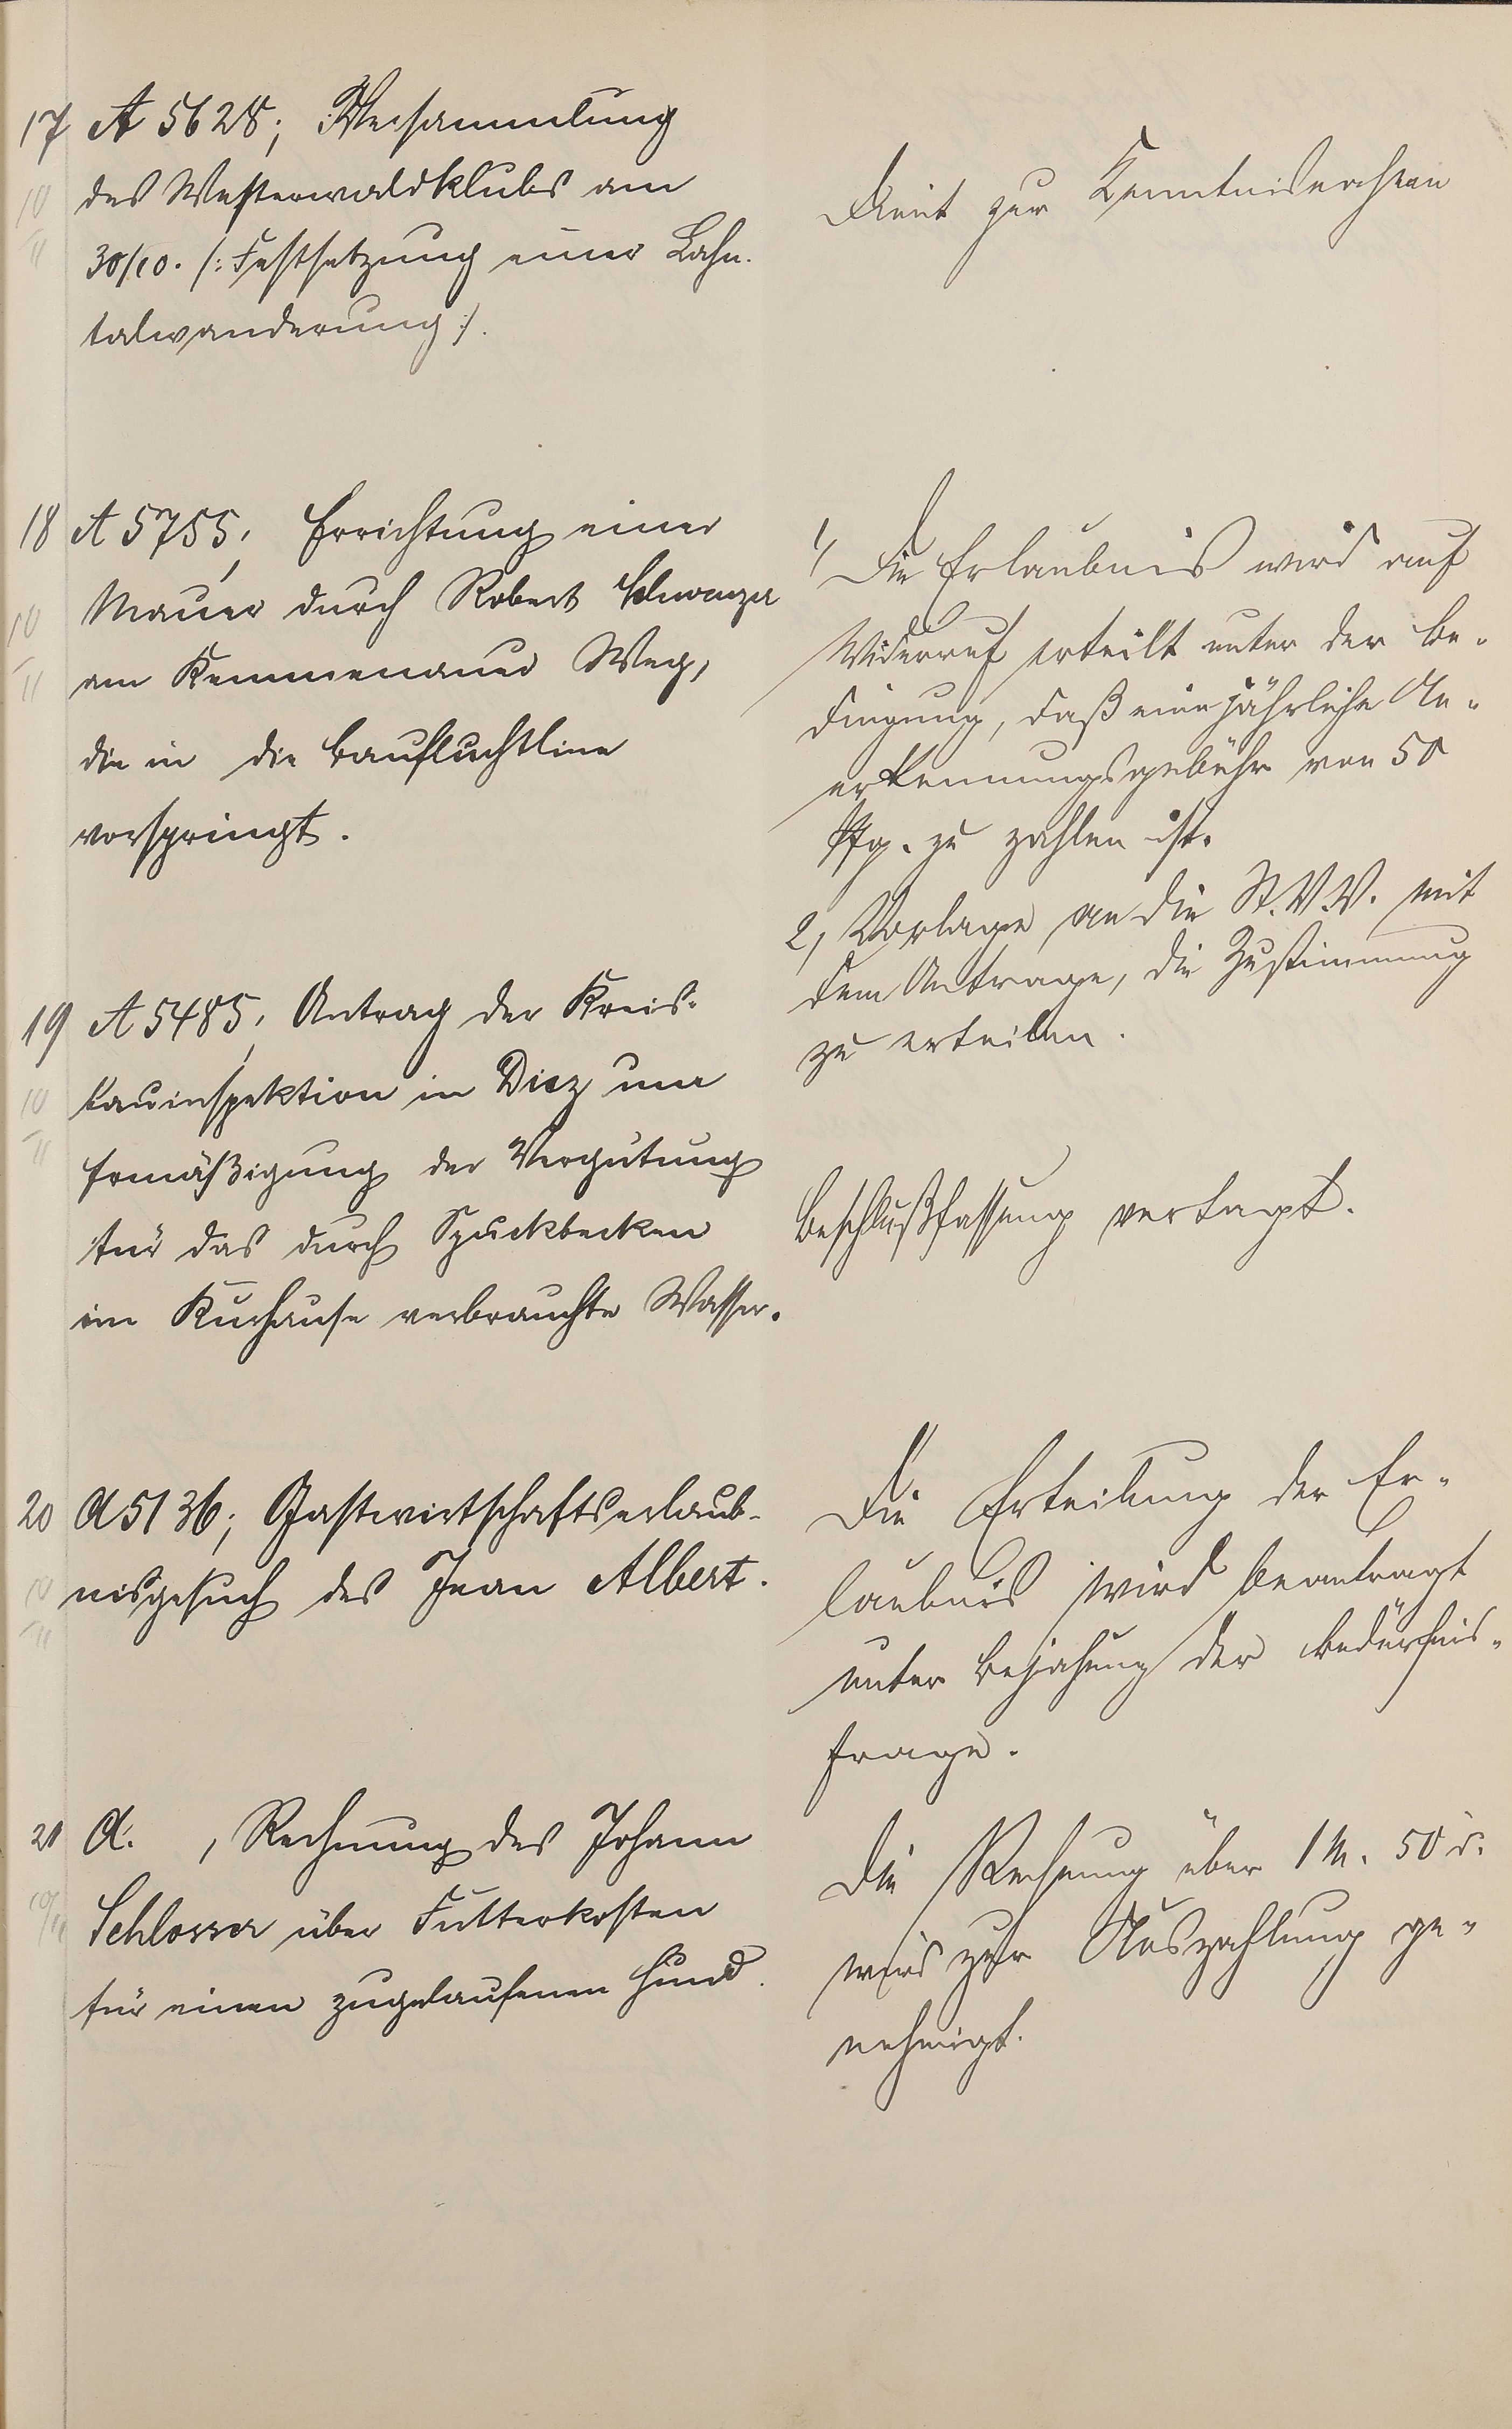 17 A 5628; Versammlung
des Westerwaldklubs am
30/10. (: Festsetzung einer Lahn-
talwanderung :).
Dient zur Kenntnisnahme
10
11
18 A 5755; Errichtung einer
Mauer durch Robert Schwarzer
am Kemmenauer Weg,
die in die Baufluchtlinie
vorspringt.
10
11
1, Die Erlaubnis wird auf
Widerruf erteilt unter der Be-
dingung, daß eine jährliche An-
erkennungsgebühr von 50
Pfg. zu zahlen ist.
2, Vorlage an die St.V.V. mit
dem Antrage, die Zustimmung
zu erteilen.
19 A 5485; Antrag der Kreis-
bauinspektion in Diez um
Ermäßigung der Vergütung
für das durch Spuckbecken
im Kurhause verbrauchte Wasser.
10
11
Beschlußfassung vertagt.
20 A 5136; Gastwirtschaftserlaub-
nisgesuch des Jean Albert.
10
11
Die Erteilung der Er-
laubnis wird beantragt
unter Bejahung der Bedürfnis-
frage.
21 A. , Rechnung des Johann
Schlosser über Futterkosten
für einen zugelaufenen Hund.
10/11
Die Rechnung über 1 M. 50 d.
wird zur Auszahlung ge-
nehmigt.